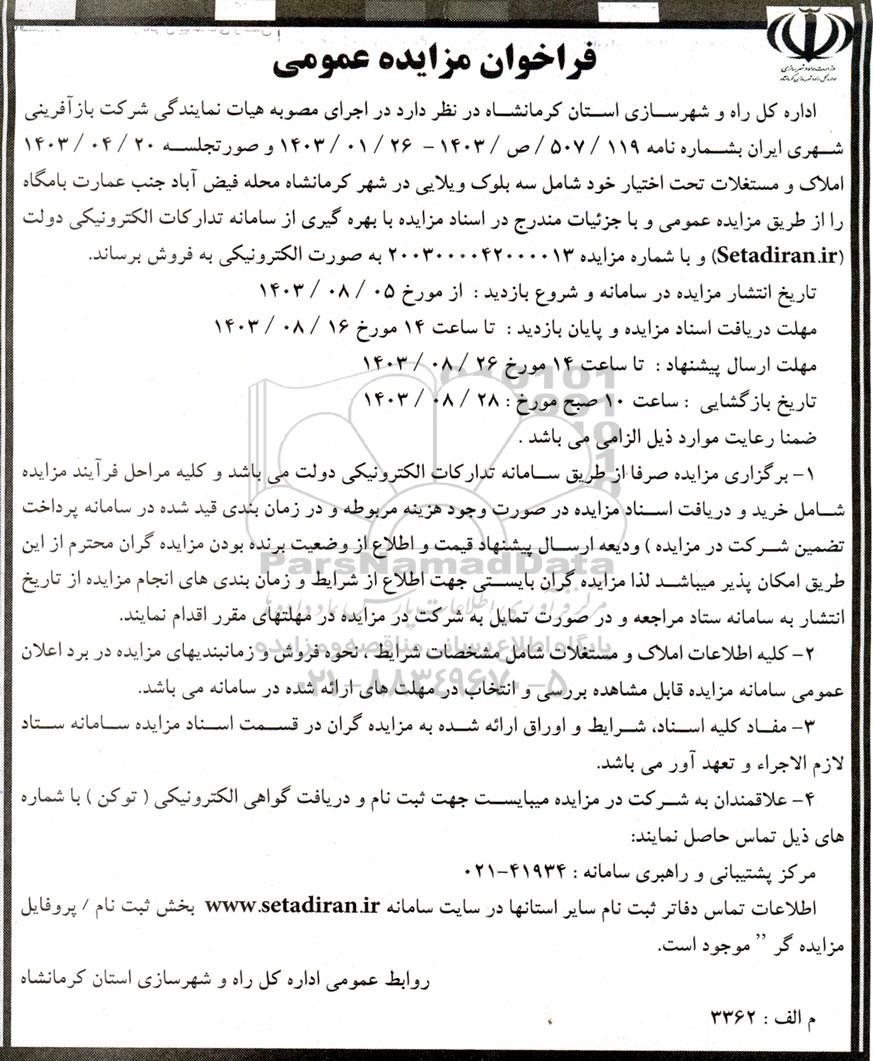 فراخوان مزایده عمومی
اداره کل راه و شهرسازی استان کرمانشاه در نظر دارد در اجرای مصوبه هیات نمایندگی شرکت بازآفرینی
شهری ایران بشماره نامه ۱۱۹ / ۵۰۷ / ص / ۱۴۰۳ – ۲۶ / ۰۱ / ۱۴۰۳ و صورتجلسه ۲۰ / ۰۴ / ۱۴۰۳
املاک و مستغلات تحت اختیار خود شامل سه بلوک ویلایی در شهر کرمانشاه محله فیض آباد جنب عمارت بامگاه
را از طریق مزایده عمومی و با جزئیات مندرج در اسناد مزایده با بهره گیری از سامانه تدارکات الکترونیکی دولت
(Setadiran.ir) و با شماره مزایده ۲۰۰۳۰۰۰۰۴۲۰۰۰۰۱۳ به صورت الکترونیکی به فروش برساند.
تاریخ انتشار مزایده در سامانه و شروع بازدید : از مورخ ۰۵ / ۰۸ / ۱۴۰۳
مهلت دریافت اسناد مزایده و پایان بازدید : تا ساعت ۱۴ مورخ ۱۶ / ۰۸ / ۱۴۰۳
مهلت ارسال پیشنهاد : تا ساعت ۱۴ مورخ ۲۶ / ۰۸ / ۱۴۰۳
تاریخ بازگشایی : ساعت ۱۰ صبح مورخ : ۲۸ / ۰۸ / ۱۴۰۳
ضمنا رعایت موارد ذیل الزامی می باشد .
۱- برگزاری مزایده صرفا از طریق سامانه تدارکات الکترونیکی دولت می باشد و کلیه مراحل فرآیند مزایده
شامل خرید و دریافت اسناد مزایده در صورت وجود هزینه مربوطه و در زمان بندی قید شده در سامانه پرداخت
تضمین شرکت در مزایده ) ودیعه ارسال پیشنهاد قیمت و اطلاع از وضعیت برنده بودن مزایده گران محترم از این
طریق امکان پذیر میباشد لذا مزایده گران بایستی جهت اطلاع از شرایط و زمان بندی های انجام مزایده از تاریخ
انتشار به سامانه ستاد مراجعه و در صورت تمایل به شرکت در مزایده در مهلتهای مقرر اقدام نمایند.
۲- کلیه اطلاعات املاک و مستغلات شامل مشخصات شرایط ، نحوه فروش و زمانبندیهای مزایده در برد اعلان
عمومی سامانه مزایده قابل مشاهده بررسی و انتخاب در مهلت های ارائه شده در سامانه می باشد.
۳- مفاد کلیه اسناد، شرایط و اوراق ارائه شده به مزایده گران در قسمت اسناد مزایده سامانه ستاد
لازم الاجراء و تعهد آور می باشد.
۴- علاقمندان به شرکت در مزایده میبایست جهت ثبت نام و دریافت گواهی الکترونیکی ( توکن ) با شماره
های ذیل تماس حاصل نمایند:
مرکز پشتیبانی و راهبری سامانه : ۴۱۹۳۴-۰۲۱
اطلاعات تماس دفاتر ثبت نام سایر استانها در سایت سامانه www.setadiran.ir بخش ثبت نام / پروفایل
مزایده گر ” موجود است.
روابط عمومی اداره کل راه و شهرسازی استان کرمانشاه
م الف : ۳۳۶۲
ParsNamadData
پایگاه اطلاع رسانی مناقصه و مزایده
۰۲۱-۸۸۳۴۹۶۷۰-۵